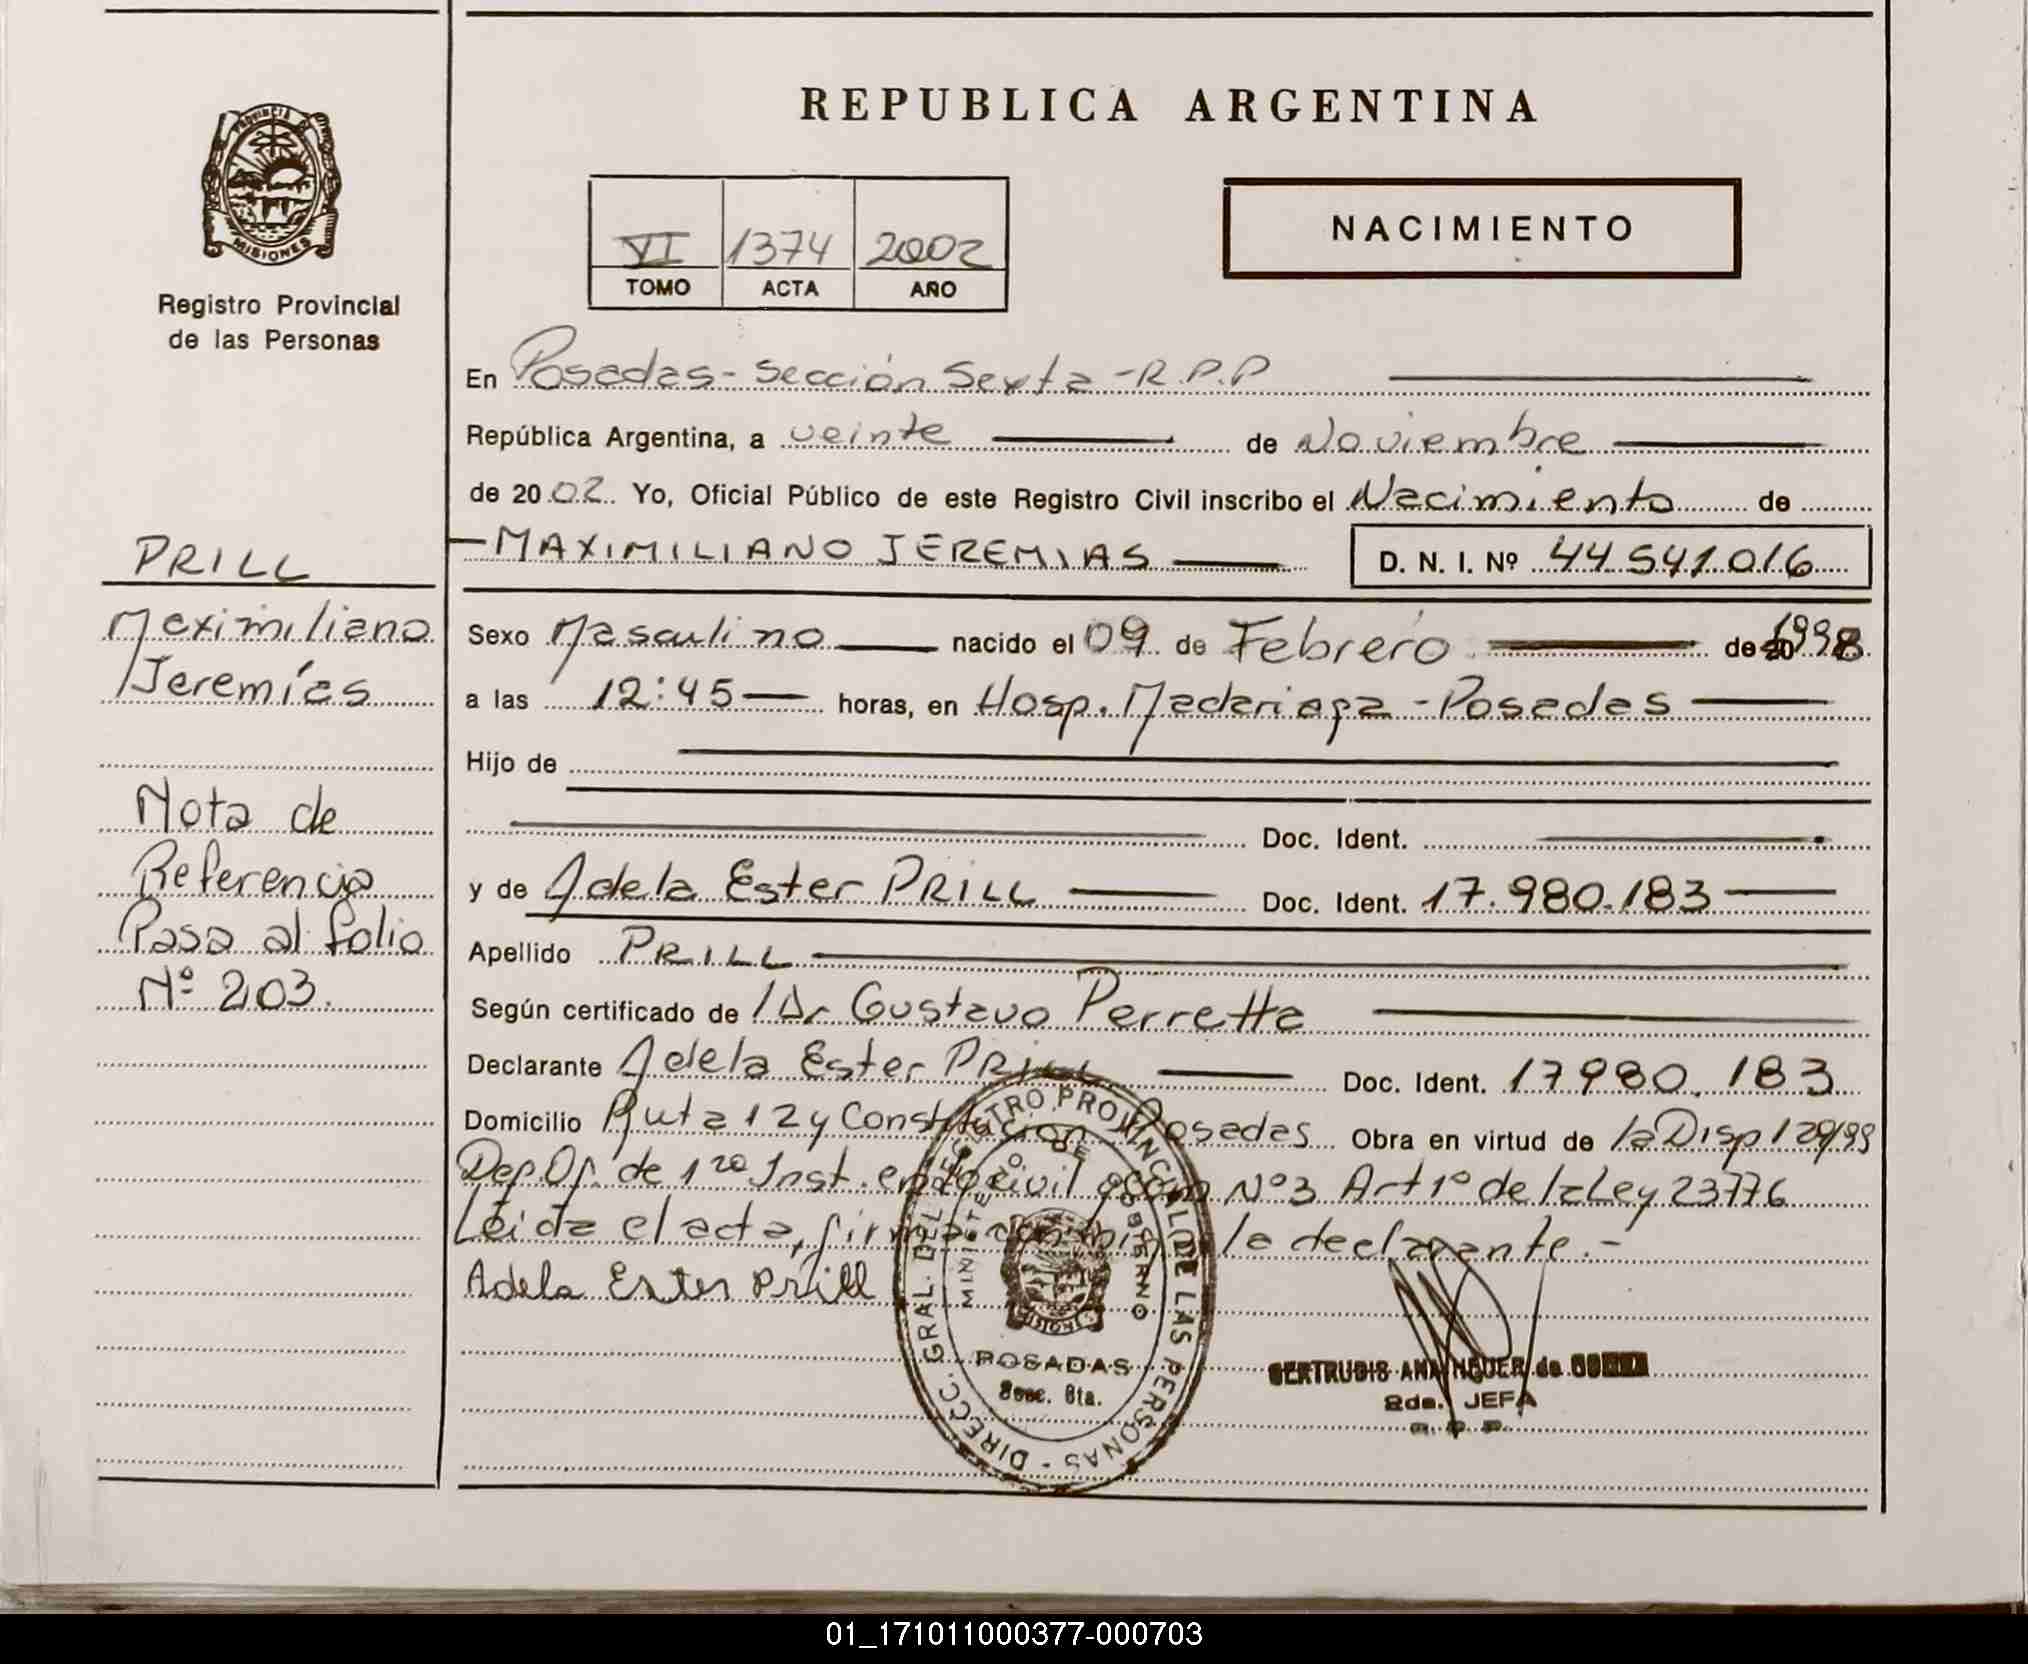 REPUBLICA ARGENTINA
PROVINCIA DE
MISIONES
Registro Provincial
de las Personas
VI 1374 2002
TOMO ACTA AÑO
NACIMIENTO
En Posadas - Sección Sexta - R.P.P
República Argentina, a veinte de Noviembre
de 2002. Yo, Oficial Público de este Registro Civil inscribo el Nacimiento de
- MAXIMILIANO JEREMIAS
D. N. I. Nº 44.541.016
Sexo Masculino nacido el 09 de Febrero de 1998.
a las 12:45 horas, en Hosp. Madariaga - Posadas
Hijo de
Doc. Ident.
y de Adela Ester PRILL Doc. Ident. 17.980.183
Apellido PRILL
Según certificado de /Dr Gustavo Perretta
Declarante Adela Ester PRILL Doc. Ident. 17980.183
Domicilio Ruta 12 y Constitución Posadas Obra en virtud de la Disp 129/99
de 1ra Inst. en lo civil Nº3 Art 1º de la Ley 23776
Leida el acta, firma conmigo la declarante.-
Adela Ester Prill
PRILL
Maximiliano
Jeremías
Nota de
Referencia
Pasa al folio
Nº 203.
DIRECC. GRAL. DEL REGISTRO PROVINCIAL DE LAS PERSONAS -
MINISTERIO DE GOBIERNO
MISIONES
POSADAS
Secc. 6ta.
GERTRUDIS ANA de
2da. JEFA
R. P. P.
01_171011000377-000703